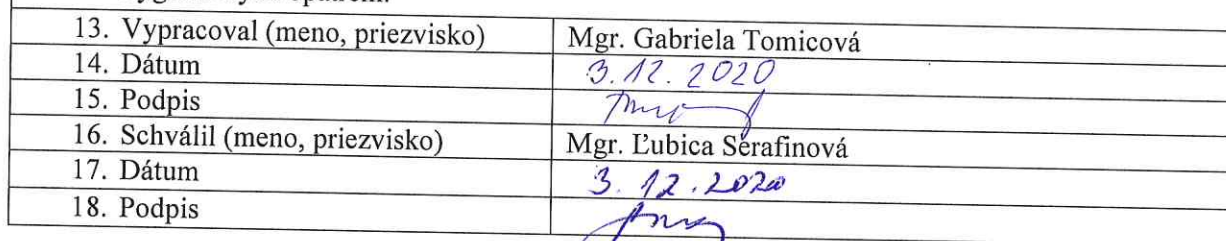 13. Vypracoval (meno, priezvisko) Mgr. Gabriela Tomicová
14. Dátum 3.12.2020
15. Podpis
16. Schválil (meno, priezvisko) Mgr. Ľubica Šerafinová
17. Dátum 3.12.2020
18. Podpis